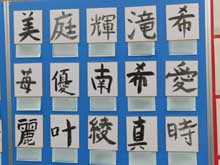 美庭輝滝希
苺優南希愛
麗叶綾真時